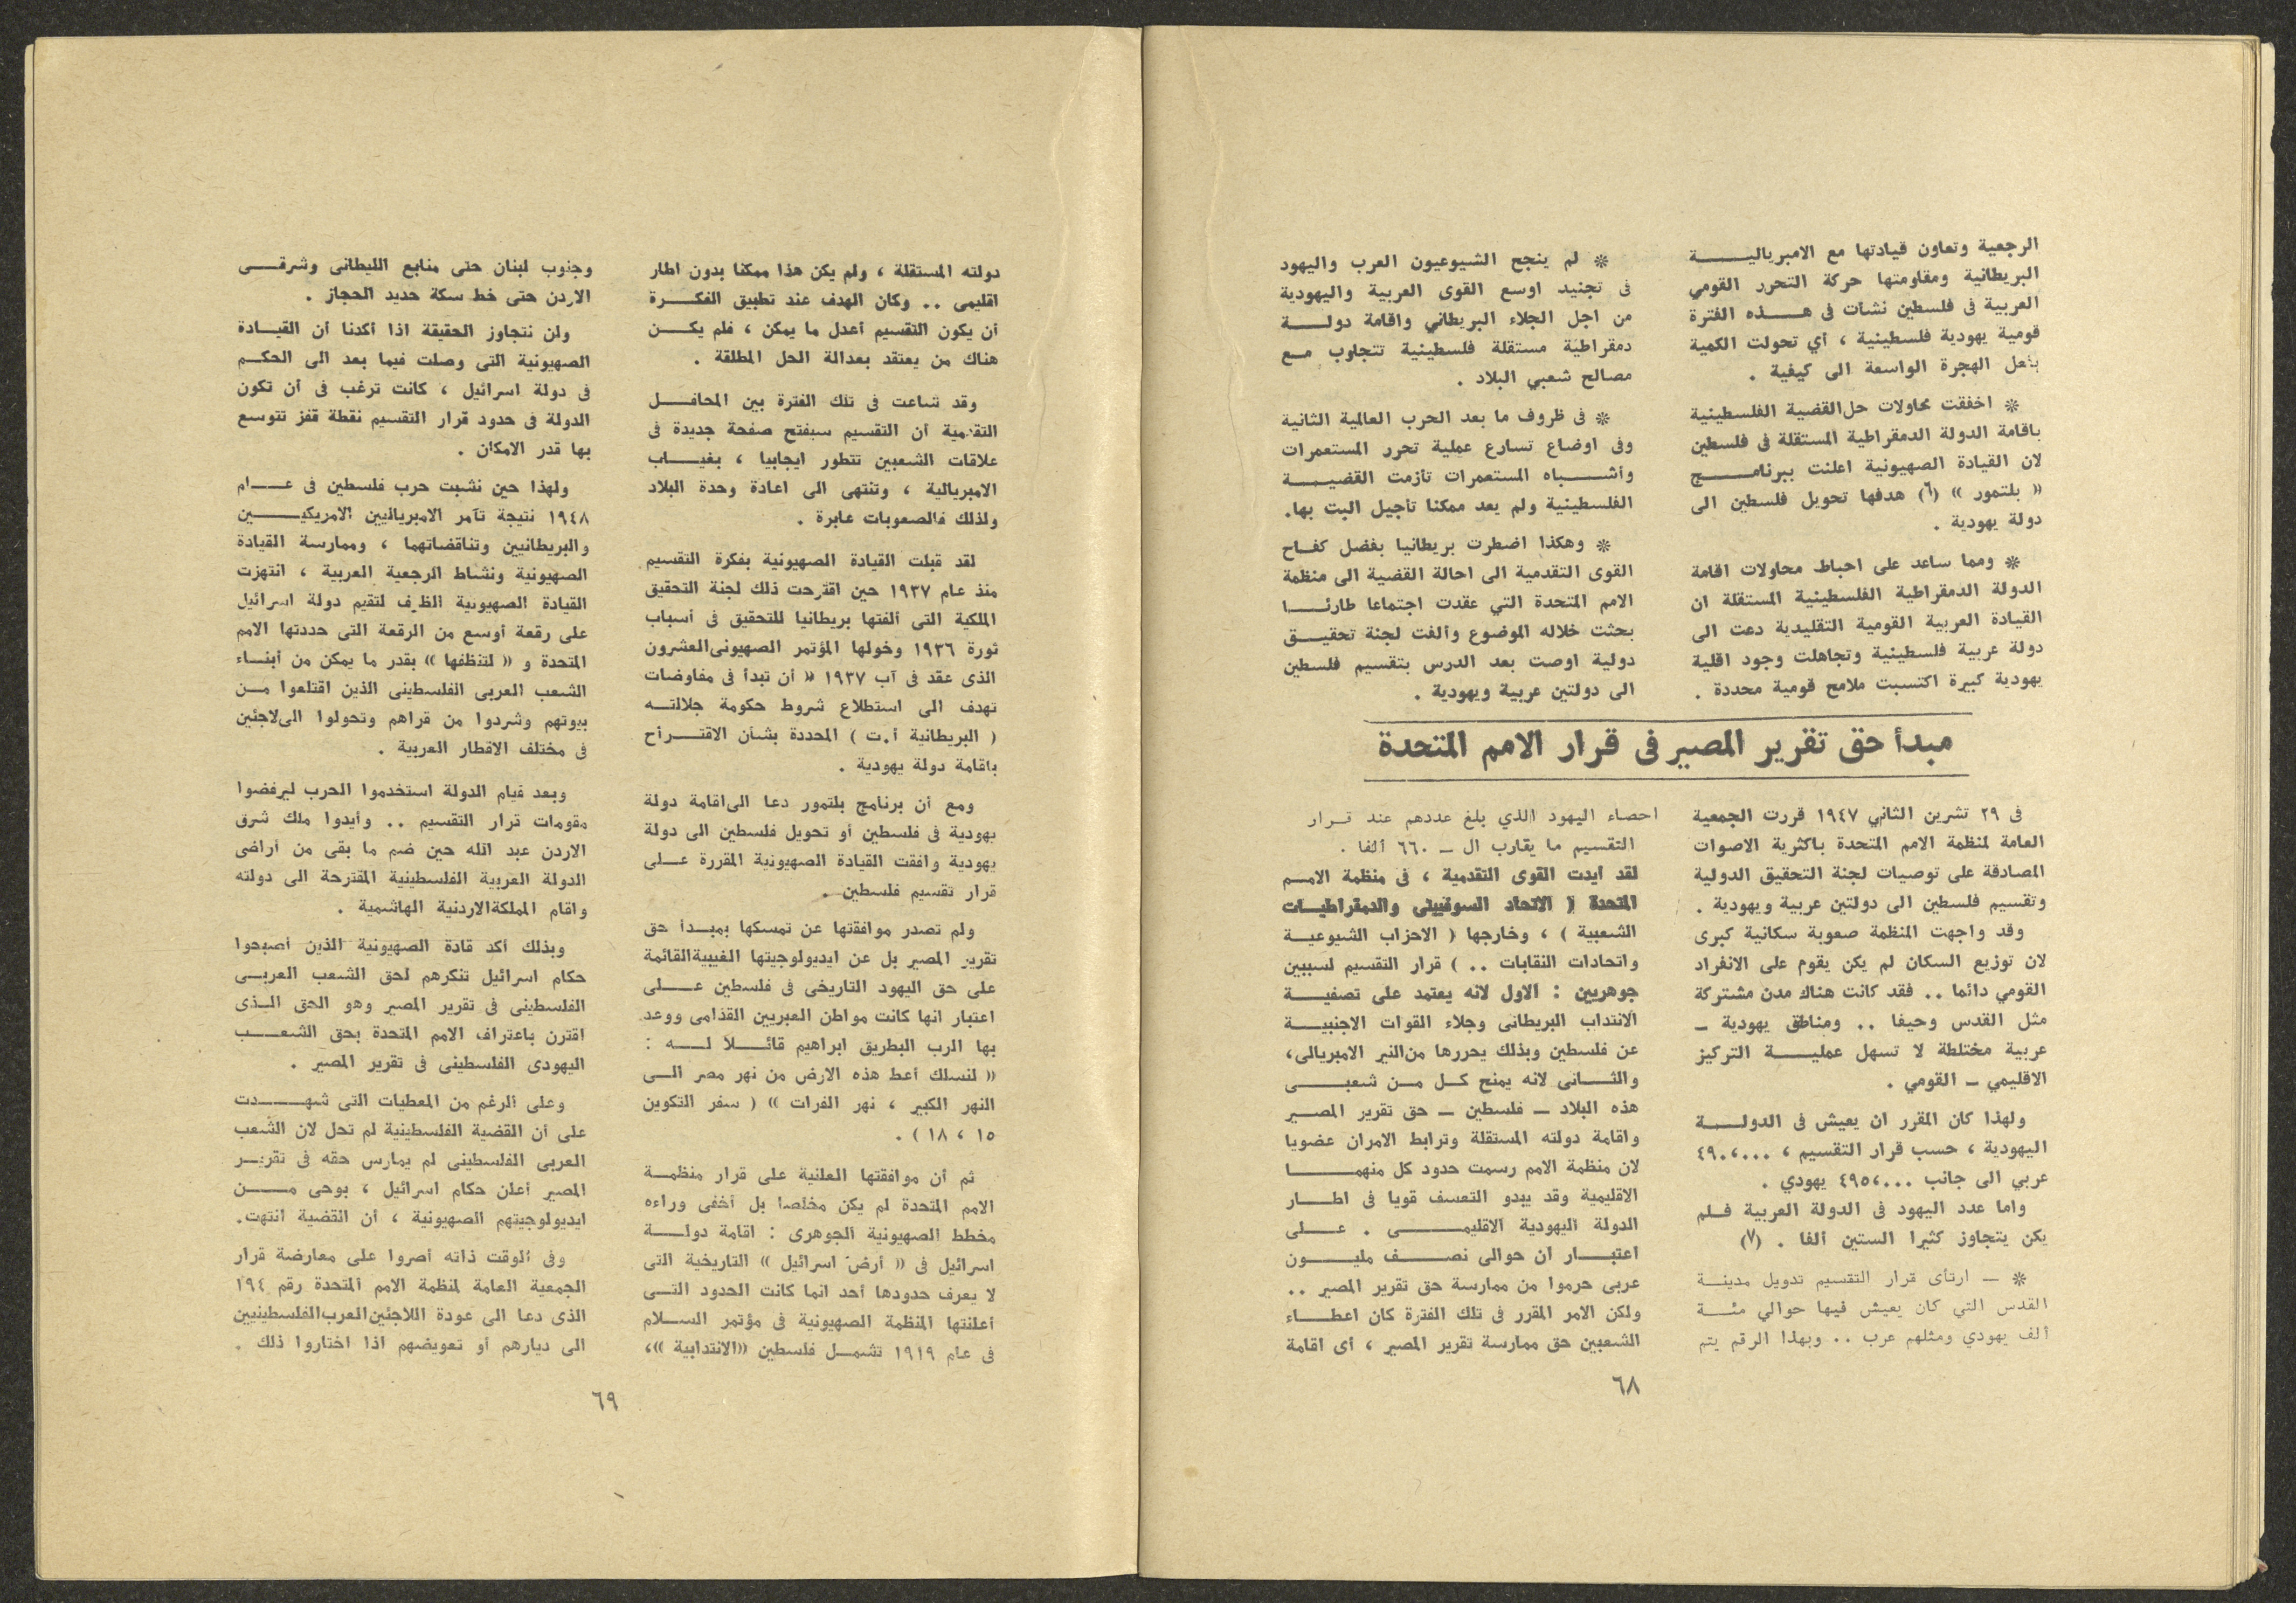 الرجعية وتعاون قيادتها مع الامبريالية
البريطانية ومقاومتها حركة التحرر القومي
العربية في فلسطين نشأت في هذه الفترة
قومية يهودية فلسطينية ، أي تحولت الكمية
بفعل الهجرة الواسعة الى كيفية .
* اخفقت محاولات حل القضية الفلسطينية
باقامة الدولة الدمقراطية المستقلة في فلسطين
لان القيادة الصهيونية اعلنت ببرنامج
« بلتمور » (٦) هدفها تحويل فلسطين الى
دولة يهودية .
* ومما ساعد على احباط محاولات اقامة
الدولة الدمقراطية الفلسطينية المستقلة ان
القيادة العربية القومية التقليدية دعت الى
دولة عربية فلسطينية وتجاهلت وجود اقلية
يهودية كبيرة اكتسبت ملامح قومية محددة .
* لم ينجح الشيوعيون العرب واليهود
في تجنيد اوسع القوى العربية واليهودية
من اجل الجلاء البريطاني واقامة دولة
دمقراطية مستقلة فلسطينية تتجاوب مع
مصالح شعبي البلاد .
* في ظروف ما بعد الحرب العالمية الثانية
وفي اوضاع تسارع عملية تحرر المستعمرات
وأشباه المستعمرات تأزمت القضية
الفلسطينية ولم يعد ممكنا تأجيل البت بها.
* وهكذا اضطرت بريطانيا بفضل كفاح
القوى التقدمية الى احالة القضية الى منظمة
الامم المتحدة التي عقدت اجتماعا طارئا
بحثت خلاله الموضوع وألفت لجنة تحقيق
دولية اوصت بعد الدرس بتقسيم فلسطين
الى دولتين عربية ويهودية .
مبدأ حق تقرير المصير في قرار الامم المتحدة
في ٢٩ تشرين الثاني ١٩٤٧ قررت الجمعية
العامة لمنظمة الامم المتحدة باكثرية الاصوات
المصادقة على توصيات لجنة التحقيق الدولية
وتقسيم فلسطين الى دولتين عربية ويهودية .
وقد واجهت المنظمة صعوبة سكانية كبرى
لان توزيع السكان لم يكن يقوم على الانفراد
القومي دائما .. فقد كانت هناك مدن مشتركة
مثل القدس وحيفا .. ومناطق يهودية ــ
عربية مختلطة لا تسهل عملية التركيز
الاقليمي ــ القومي .
ولهذا كان المقرر ان يعيش في الدولة
اليهودية ، حسب قرار التقسيم ، ٤٩٠،٠٠٠
عربي الى جانب ٤٩٥،٠٠٠ يهودي .
واما عدد اليهود في الدولة العربية فلم
يكن يتجاوز كثيرا الستين ألفا . (٧)
* ــ ارتأى قرار التقسيم تدويل مدينة
القدس التي كان يعيش فيها حوالي مئة
ألف يهودي ومثلهم عرب .. وبهذا الرقم يتم
احصاء اليهود الذي بلغ عددهم عند قرار
التقسيم ما يقارب ال ــ ٦٦٠ ألفا .
لقد ايدت القوى التقدمية ، في منظمة الامم
المتحدة ( الاتحاد السوفييتي والدمقراطيات
الشعبية ) ، وخارجها ( الاحزاب الشيوعية
واتحادات النقابات .. ) قرار التقسيم لسببين
جوهريين : الاول لانه يعتمد على تصفية
الانتداب البريطاني وجلاء القوات الاجنبية
عن فلسطين وبذلك يحررها من النير الامبريالي،
والثاني لانه يمنح كل من شعبي
هذه البلاد ــ فلسطين ــ حق تقرير المصير
واقامة دولته المستقلة وترابط الامران عضويا
لان منظمة الامم رسمت حدود كل منهما
الاقليمية وقد يبدو التعسف قويا في اطار
الدولة اليهودية الاقليمي . على
اعتبار ان حوالى نصف مليون
عربى حرموا من ممارسة حق تقرير المصير ..
ولكن الامر المقرر في تلك الفترة كان اعطاء
الشعبين حق ممارسة تقرير المصير ، أى اقامة
٦٨
دولته المستقلة ، ولم يكن هذا ممكنا بدون اطار
اقليمي .. وكان الهدف عند تطبيق الفكرة
أن يكون التقسيم أعدل ما يمكن ، فلم يكن
هناك من يعتقد بعدالة الحل المطلقة .
وقد شاعت في تلك الفترة بين المحافل
التقدمية أن التقسيم سيفتح صفحة جديدة في
علاقات الشعبين تتطور ايجابيا ، بغياب
الامبريالية ، وتنتهى الى اعادة وحدة البلاد
ولذلك فالصعوبات عابرة .
لقد قبلت القيادة الصهيونية بفكرة التقسيم
منذ عام ١٩٣٧ حين اقترحت ذلك لجنة التحقيق
الملكية التى ألفتها بريطانيا للتحقيق في أسباب
ثورة ١٩٣٦ وخولها المؤتمر الصهيونى العشرون
الذى عقد في آب ١٩٣٧ « أن تبدأ في مفاوضات
تهدف الى استطلاع شروط حكومة جلالته
( البريطانية أ.ت ) المحددة بشأن الاقتراح
باقامة دولة يهودية .
ومع أن برنامج بلتمور دعا الى اقامة دولة
يهودية في فلسطين أو تحويل فلسطين الى دولة
يهودية وافقت القيادة الصهيونية المقررة على
قرار تقسيم فلسطين .
ولم تصدر موافقتها عن تمسكها بمبدأ حق
تقرير المصير بل عن ايديولوجيتها الغيبية القائمة
على حق اليهود التاريخى في فلسطين على
اعتبار انها كانت مواطن العبريين القدامى ووعد
بها الرب البطريق ابراهيم قائلا له :
« لنسلك أعط هذه الارض من نهر مصر الى
النهر الكبير ، نهر الفرات » ( سفر التكوين
١٥ ، ١٨ ) .
ثم أن موافقتها العلنية على قرار منظمة
الامم المتحدة لم يكن مخلصا بل أخفى وراءه
مخطط الصهيونية الجوهرى : اقامة دولة
اسرائيل في « أرض اسرائيل » التاريخية التى
لا يعرف حدودها أحد انما كانت الحدود التى
أعلنتها المنظمة الصهيونية في مؤتمر السلام
في عام ١٩١٩ تشمل فلسطين «الانتدابية »،
وجنوب لبنان حتى منابع الليطانى وشرقى
الاردن حتى خط سكة حديد الحجاز .
ولن نتجاوز الحقيقة اذا أكدنا أن القيادة
الصهيونية التى وصلت فيما بعد الى الحكم
في دولة اسرائيل ، كانت ترغب في أن تكون
الدولة في حدود قرار التقسيم نقطة قفز تتوسع
بها قدر الامكان .
ولهذا حين نشبت حرب فلسطين في عام
١٩٤٨ نتيجة تآمر الامبرياليين الامريكيين
والبريطانيين وتناقضاتهما ، وممارسة القيادة
الصهيونية ونشاط الرجعية العربية ، انتهزت
القيادة الصهيونية الظرف لتقيم دولة اسرائيل
على رقعة أوسع من الرقعة التى حددتها الامم
المتحدة و « لتنظفها » بقدر ما يمكن من أبناء
الشعب العربى الفلسطينى الذين اقتلعوا من
بيوتهم وشردوا من قراهم وتحولوا الى لاجئين
في مختلف الاقطار العربية .
وبعد قيام الدولة استخدموا الحرب ليرفضوا
مقومات قرار التقسيم .. وأيدوا ملك شرق
الاردن عبد الله حين ضم ما بقى من أراضى
الدولة العربية الفلسطينية المقترحة الى دولته
واقام المملكة الاردنية الهاشمية .
وبذلك أكد قادة الصهيونية الذين أصبحوا
حكام اسرائيل تنكرهم لحق الشعب العربى
الفلسطينى في تقرير المصير وهو الحق الذى
اقترن باعتراف الامم المتحدة بحق الشعب
اليهودى الفلسطينى في تقرير المصير .
وعلى الرغم من المعطيات التى شهدت
على أن القضية الفلسطينية لم تحل لان الشعب
العربى الفلسطينى لم يمارس حقه في تقرير
المصير أعلن حكام اسرائيل ، بوحى من
ايديولوجيتهم الصهيونية ، أن القضية انتهت.
وفي الوقت ذاته أصروا على معارضة قرار
الجمعية العامة لمنظمة الامم المتحدة رقم ١٩٤
الذى دعا الى عودة اللاجئين العرب الفلسطينيين
الى ديارهم أو تعويضهم اذا اختاروا ذلك .
٦٩